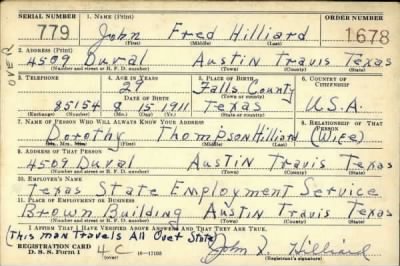 SERIAL NUMBER 1. NAME (Print) ORDER NUMBER
779 John Fred Hilliard 1678
(First) (Middle) (Last)
2. ADDRESS (Print)
4509 Duval Austin Travis Texas
(Number and street or R. F. D. number) (Town) (County) (State)
OVER
3. TELEPHONE 4. AGE IN YEARS 5. PLACE OF BIRTH 6. COUNTRY OF CITIZENSHIP
29 Falls County
DATE OF BIRTH (Town or county)
85154 8 15 1911 Texas U.S.A.
(Exchange) (Number) (Mo.) (Day) (Yr.) (State or country)
7. NAME OF PERSON WHO WILL ALWAYS KNOW YOUR ADDRESS 8. RELATIONSHIP OF THAT PERSON
Dorothy Thompson Hilliard (Wife)
(Mr., Mrs., Miss) (First) (Middle) (Last)
9. ADDRESS OF THAT PERSON
4509 Duval Austin Travis Texas
(Number and street or R. F. D. number) (Town) (County) (State)
10. EMPLOYER'S NAME
Texas State Employment Service
11. PLACE OF EMPLOYMENT OR BUSINESS
Brown Building Austin Travis Texas
(Number and street or R. F. D. number) (Town) (County) (State)
I AFFIRM THAT I HAVE VERIFIED ABOVE ANSWERS AND THAT THEY ARE TRUE.
(This man Travels All Over State)
REGISTRATION CARD
D. S. S. Form 1 4C 16-17105 John F. Hilliard
(over) (Registrant's signature)